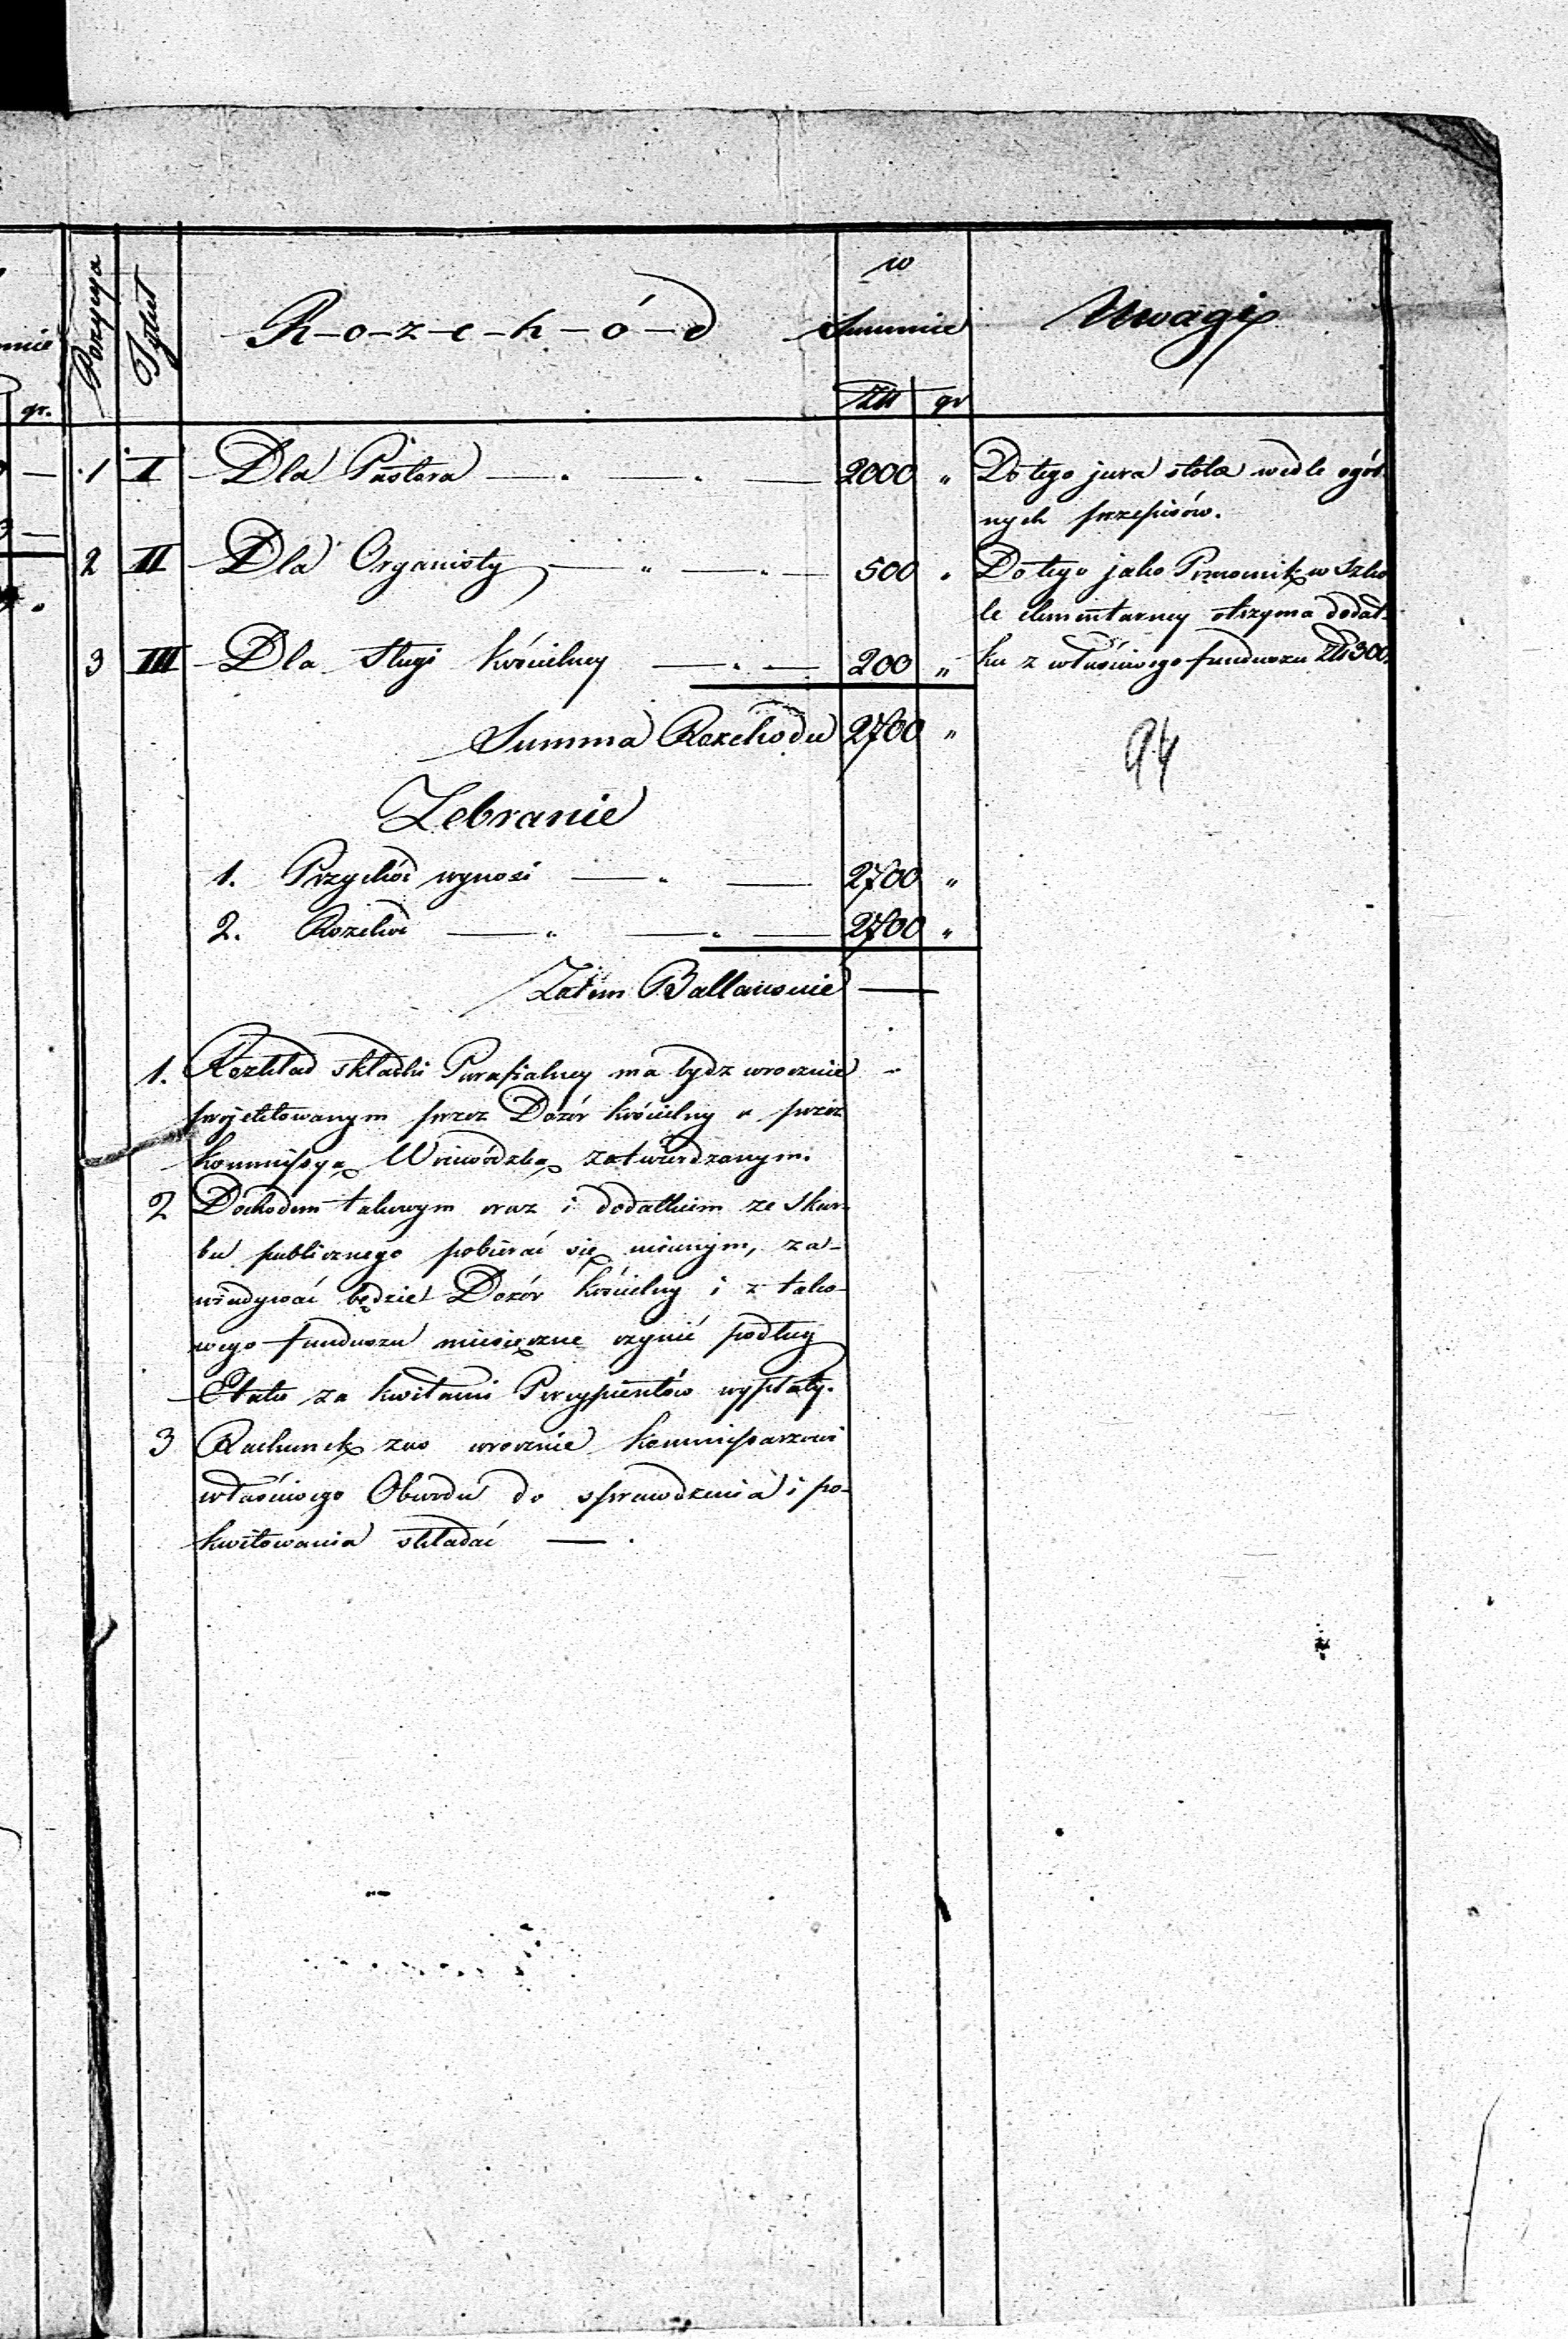 mie
gr.
Pozycya
Tytuł
R-o-z-c-h-ó-d
w
Summie
Złt
gr
Uwagi
1 I Dla Pastora 2000 "
Do tego jura stolæ wedle ogól-
nych przepisów.
2 II Dla Organisty 500 "
Do tego jako Pomocnik w Szko
le elementarney otrzyma dodat-
3 III Dla Sługi kościelney 200 "
ku z właściwego funduszu Złt 300.
Summa Rozchodu 2700 "
94
Zebranie
1. Przychód wynosi 2700 "
2. Rozchód 2700 "
Zatem Ballansuie —
1. Rozkład składki Parafialney ma bydz corocznie
projektowanym przez Dozór kościelny a przez
Kommissyą Woiewódzką zatwierdzanym.
2 Dochodem takowym oraz i dodatkiem ze Skar-
bu publicznego pobierać się maiącym, za-
wiadywać będzie Dozór kościelny i z tako-
wego funduszu miesięczne czynić podług
Etatu za kwitami Percypientów wypłaty.
3 Rachunek zaś corocznie Kommissarzowi
właściwego Obwodu do sprawdzenia i po-
kwitowania składać — .